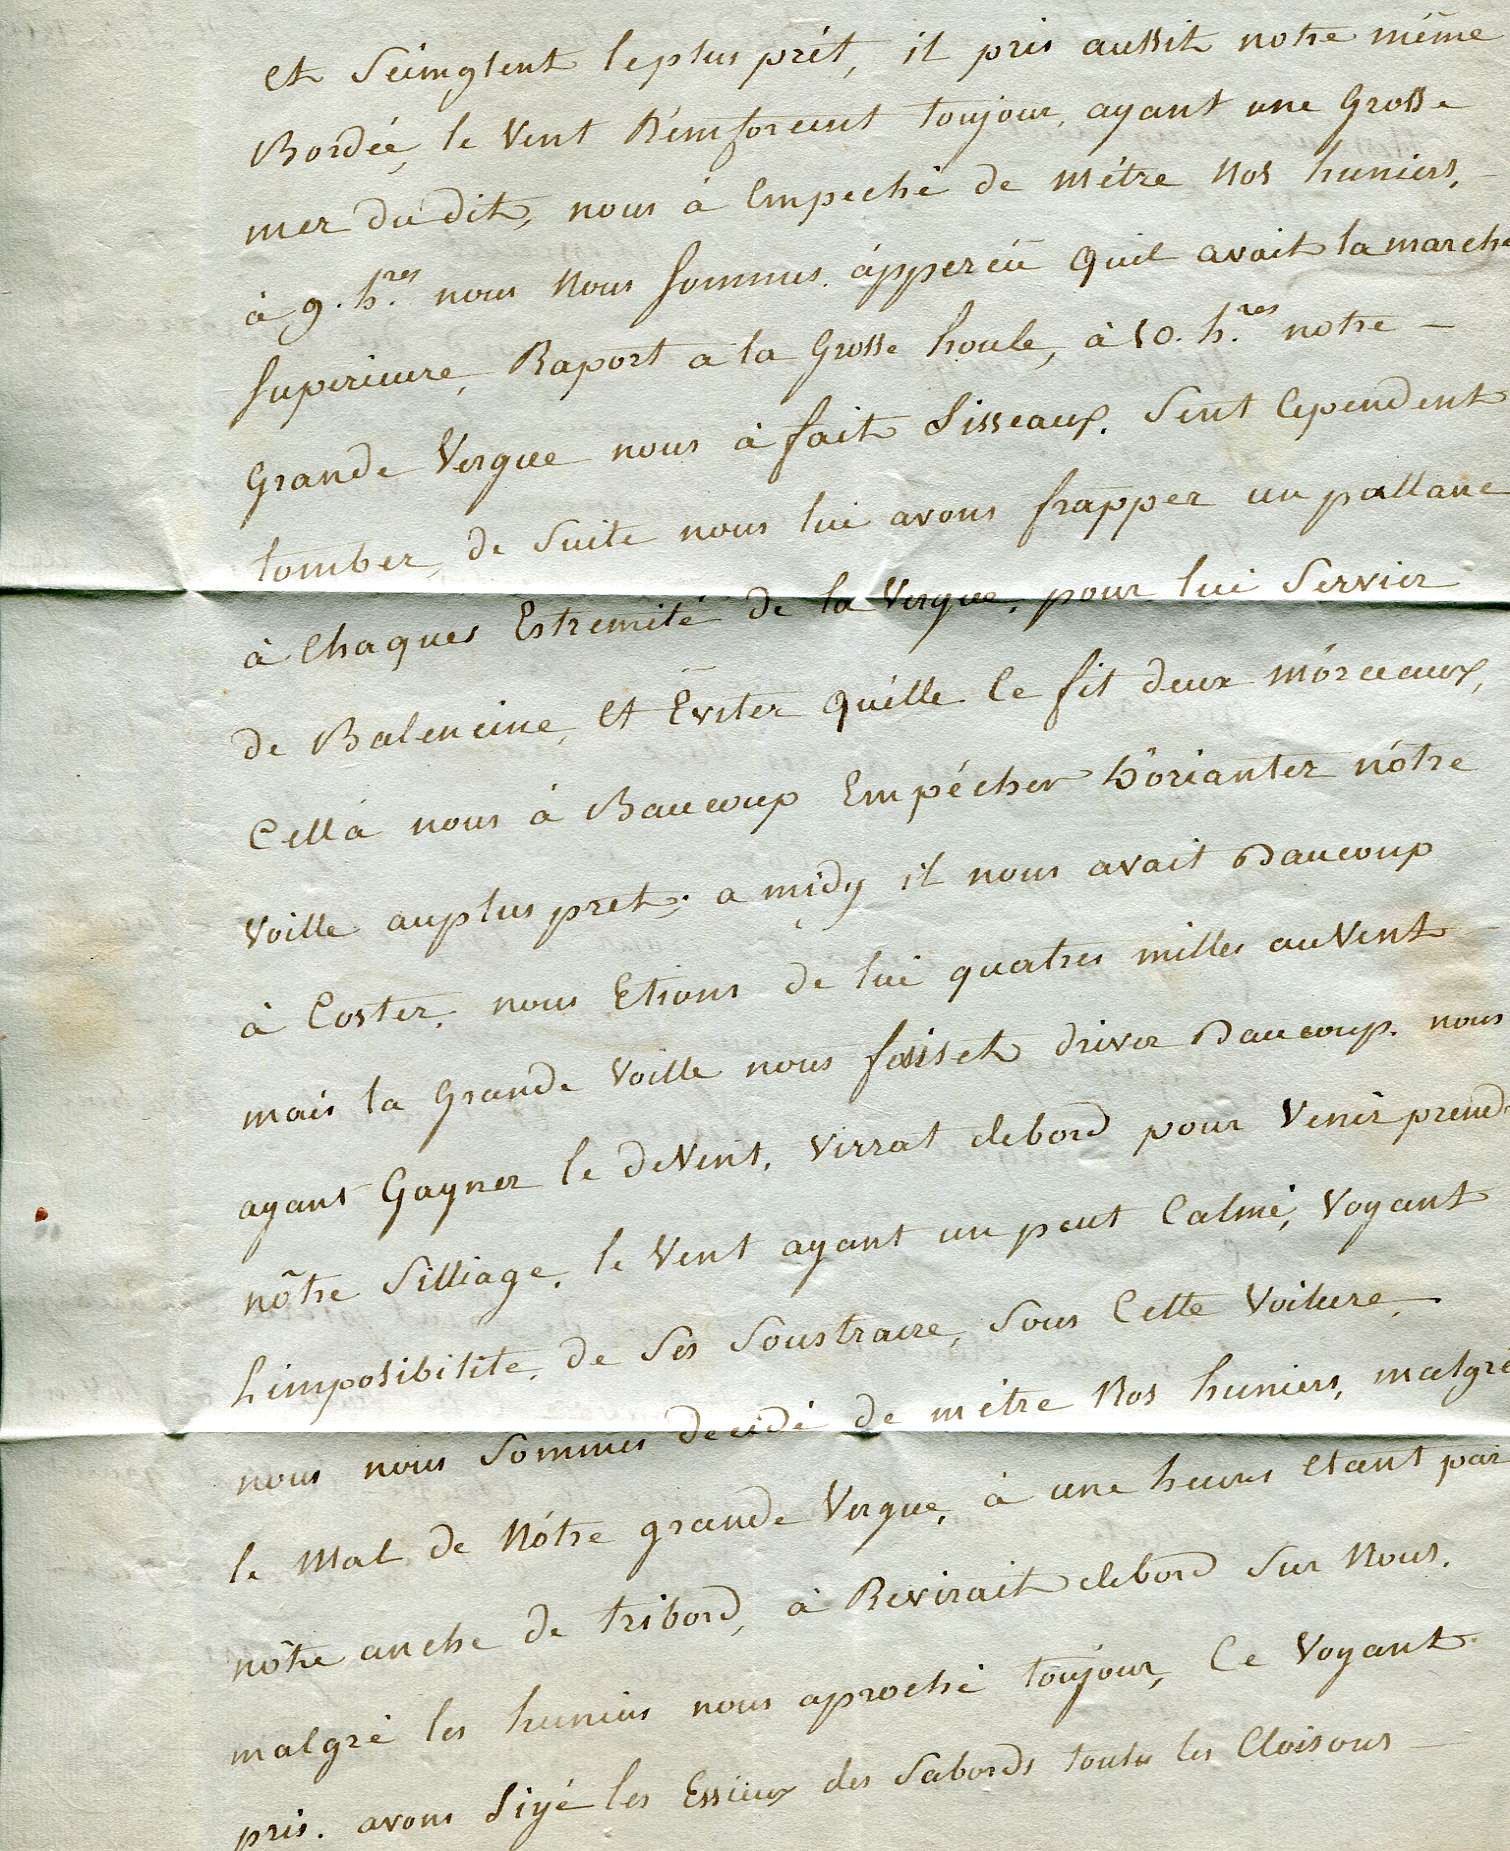 et Seimglent leplus prét, il pris aussit notre même
Bordée, le Vent Rémforcent toujour, ayant une Grosse
mer du dit, nous à Empeché de métre Nos huniers,
à 9. h.res nous Nous sommes. ápperçü Quil avait la marche
superieure, Raport a la Grosse houle, à 10. h.res notre —
Grande Vergue nous à fait Sisseaux. Sent Cependent
tomber, de Suite nous lui avons frapper un pallanc
à Chaques Estremité de la Vergue. pour lui Servier
de Balencine, et Eviter Quélle Ce fit deux mórceaux,
Cellá nous à Baucoup Empécher D'orianter nótre
Voille auplus pret; a midy il nous avait Baucoup
à Coster, nous Etions de lui quatres milles au Vent
mais la Grande Voille nous faiset driver Baucoup. nous
ayant Gagner le deVent, Virrat debord pour Venir prend
nôtre Silliage, le Vent ayant un peut Calmé, Voyant
Limposibilite, de Ses Soustraire, Sous Cette Voilure,
nous nous Sommes decidé de métre Nos huniers, malgré
le Mal de Nótre grande Vergue, à une heures etant par
nôtre anche de tribord, à Revirait debord Sur Nous.
malgré les huniers nous aproché toujour, Ce Voyant
pris. avons Siyé les Essieux des Sabords toutes les Cloisons —